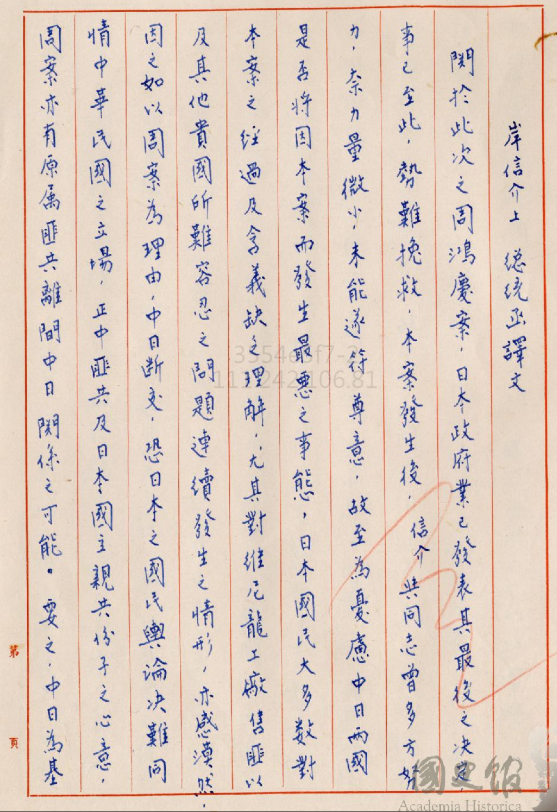 岸信介上 總統函譯文
関於此次之周鴻慶案，日本政府業已發表其最後之決定
事已至此，勢難挽救，本案發生後，信介與同志曾多方努
力，奈力量微小，未能遂符尊意，故至為憂慮中日兩國
是否將因本案而發生最悪之事態，日本國民大多数對
本案之經過及含義缺乏理解，尤其對維尼龍工廠售匪以
及其他貴國所難容忍之問題連續發生之情形，亦感漠然，
因之如以周案為理由，中日断交，恐日本之國民輿論决難同
情中華民國之立場，正中匪共及日本國主親共份子之心意，
周案亦有原属匪共離間中日関係之可能。要之，中日為基
第 頁
國史館
Academia Historica